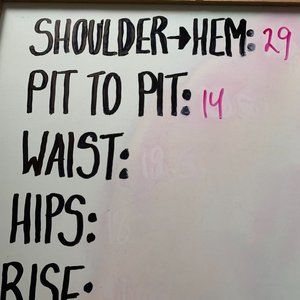 SHOULDER→HEM: 29
PIT TO PIT: 14
WAIST:
HIPS:
RISE: